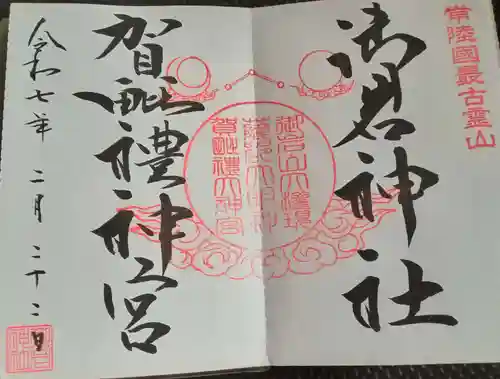 常陸國最古霊山
御岩神社
御岩山大権現
賀毗禮大神宮
賀毗禮神宮
令和七年二月二十二日